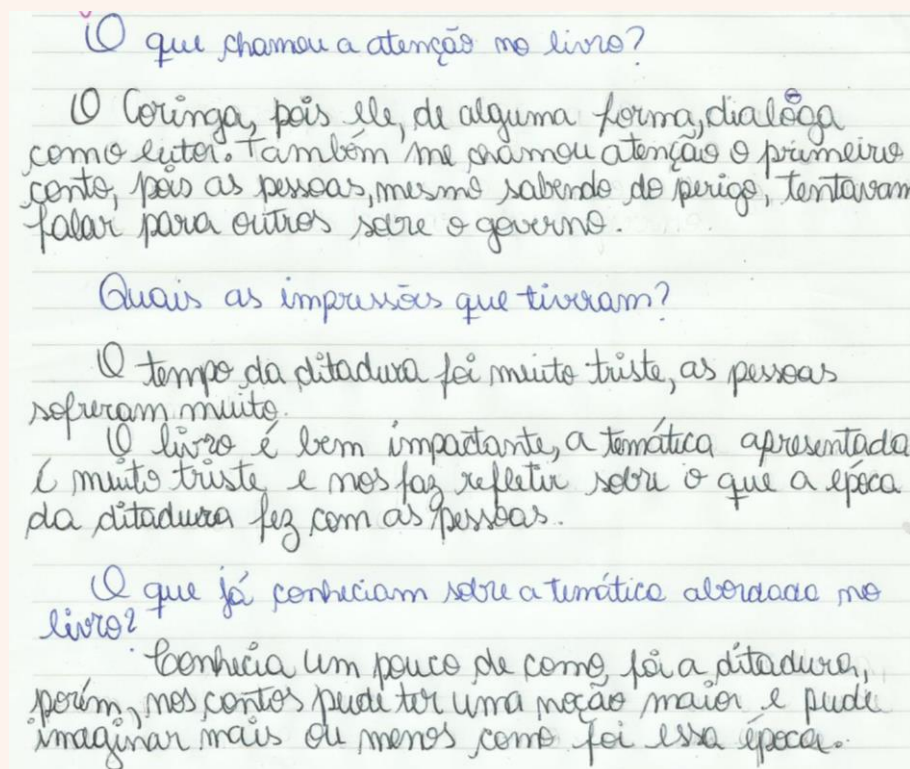 O que chamou a atenção no livro?
O Coringa, pois ele, de alguma forma, dialoga
com o leitor. Também me chamou atenção o primeiro
conto, pois as pessoas, mesmo sabendo do perigo, tentavam
falar para outros sobre o governo.
Quais as impressões que tiveram?
O tempo da ditadura foi muito triste, as pessoas
sofreram muito.
O livro é bem impactante, a temática apresentada
é muito triste e nos faz refletir sobre o que a época
da ditadura fez com as pessoas.
O que já conheciam sobre a temática abordada no
livro?
Conhecia um pouco de como foi a ditadura,
porém, nos contos pude ter uma noção maior e pude
imaginar mais ou menos como foi essa época.